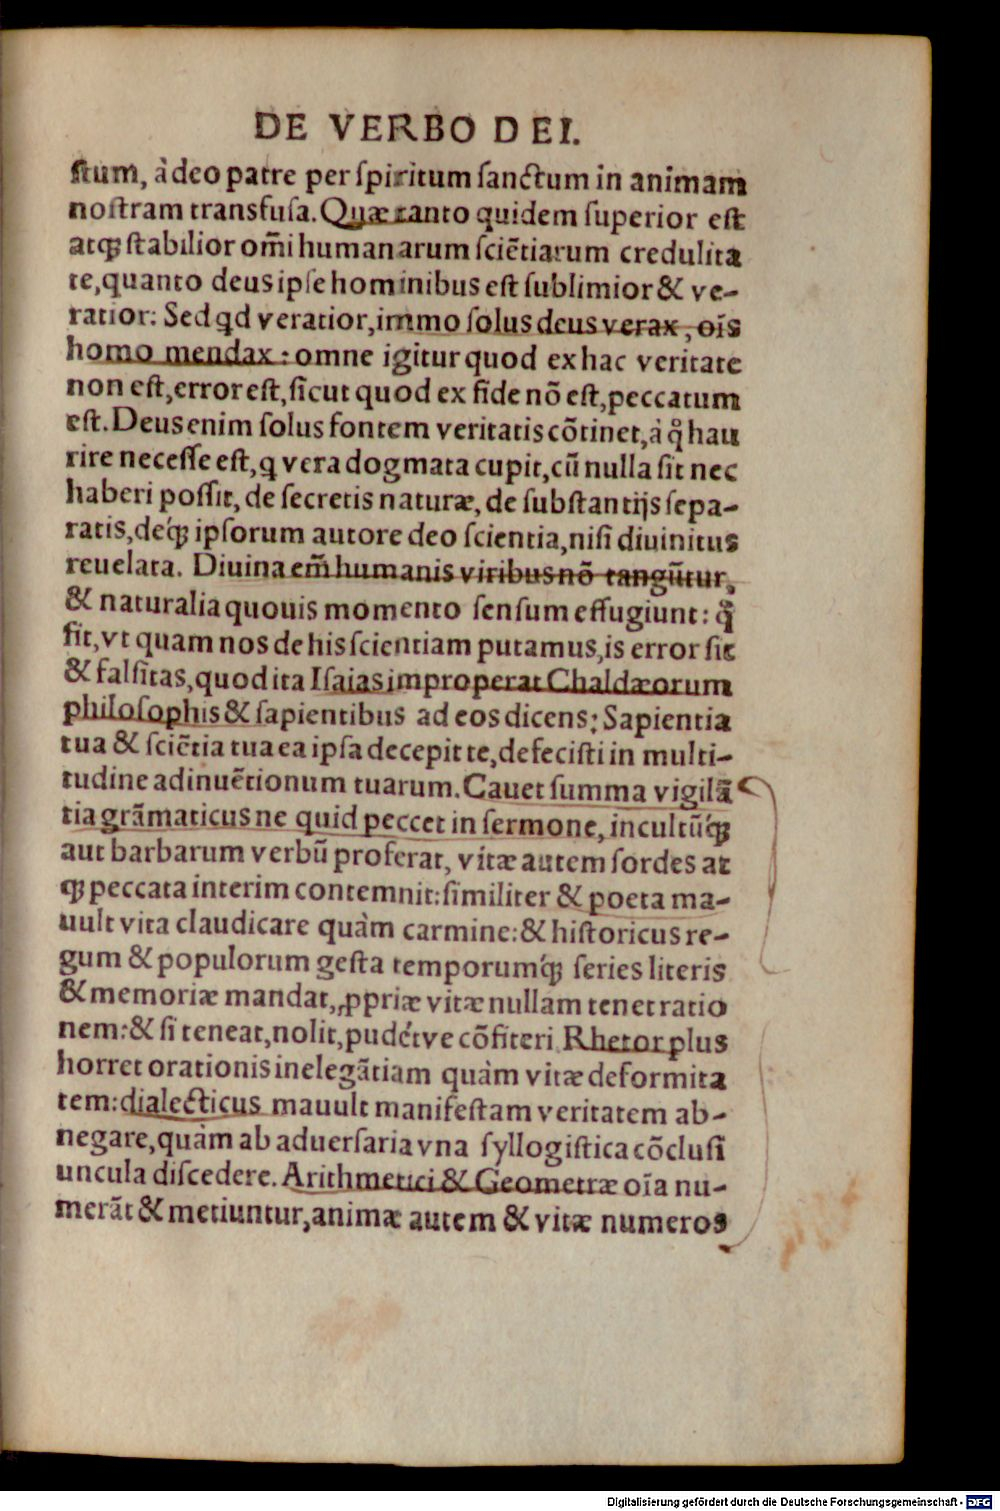 DE VERBO DEI.
ſtum, à deo patre per ſpiritum ſanctum in animam
noſtram transfuſa. Quæ tanto quidem ſuperior eſt
atqꝫ ſtabilior om̃i humanarum ſciẽtiarum credulita
te, quanto deus ipſe hominibus eſt ſublimior & ve-
ratior: Sed qd veratior, immo ſolus deus verax, oı̃s
homo mendax: omne igitur quod ex hac veritate
non eſt, error eſt, ſicut quod ex fide nõ eſt, peccatum
eſt. Deus enim ſolus fontem veritatis cõtinet, à q̊ hau
rire neceſſe eſt, q vera dogmata cupit, cũ nulla ſit nec
haberi poſſit, de ſecretis naturæ, de ſubſtantijs ſepa-
ratis, deq́ꝫ ipſorum autore deo ſcientia, niſi diuinitus
reuelata. Diuina em̃ humanis viribus nõ tangũtur,
& naturalia quouis momento ſenſum effugiunt: q̊
fit, vt quam nos de his ſcientiam putamus, is error ſit
& falſitas, quod ita Iſaias improperat Chaldæorum
philoſophis & ſapientibus ad eos dicens: Sapientia
tua & ſciẽtia tua ea ipſa decepit te, defeciſti in multi-
tudine adinuẽtionum tuarum. Cauet ſumma vigilã
tia grãmaticus ne quid peccet in ſermone, incultũq́ꝫ
aut barbarum verbũ proferat, vitæ autem ſordes at
qꝫ peccata interim contemnit: ſimiliter & poeta ma-
uult vita claudicare quàm carmine: & hiſtoricus re-
gum & populorum geſta temporumq́ꝫ ſeries literis
& memoriæ mandat, ꝓpriæ vitæ nullam tenet ratio
nem: & ſi teneat, nolit, pudétve cõfiteri Rhetor plus
horret orationis inelegãtiam quàm vitæ deformita
tem: dialecticus mauult manifeſtam veritatem ab-
negare, quàm ab aduerſaria vna ſyllogiſtica cõcluſi
uncula diſcedere. Arithmetici & Geometræ oı̃a nu-
merãt & metiuntur, animæ autem & vitæ numeros
Digitalisierung gefördert durch die Deutsche Forschungsgemeinschaft - DFG